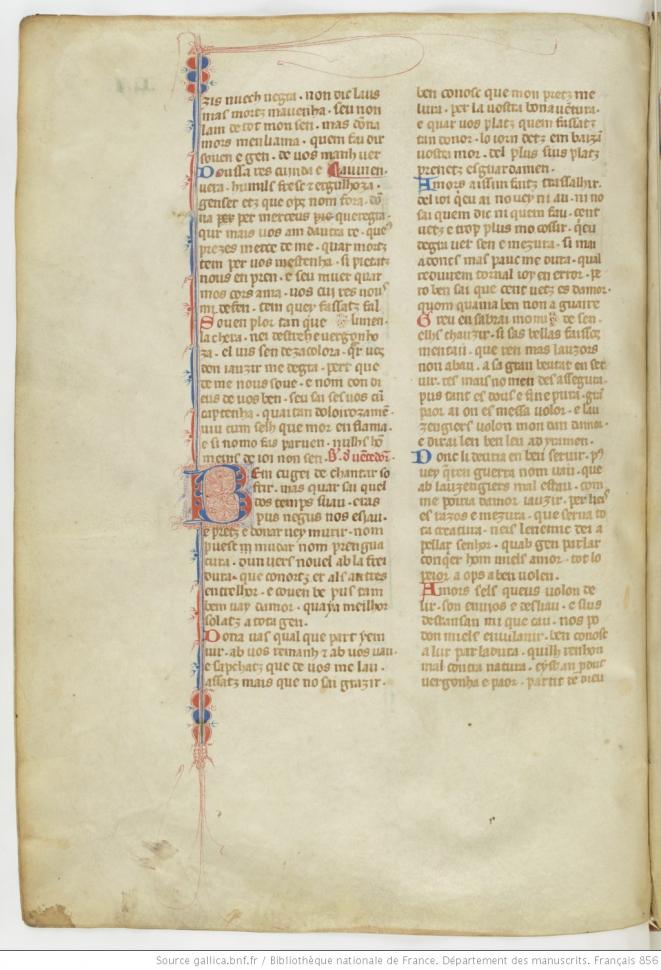 zis nuech negra · non die laus
mas mortz mavenha · seu non
lam de tot mon sen · mas dōna
mors men liama · quem fai dir
soven e gen · de vos manh ver
Doussa res cuinda e
vera · humils fresc et ergulhoza ·
genser etz que ops nom fora · dō
na per merceus
qur mais vos am dautra re · que
prezes merce de me · quar mortz
tem per vos mestenha · si pietatz
nous en pren · e seu muer quar
mos cors ama · vos cui res nous
mi defen · tem quey fassatz fal
Soven plor tan que
la chera · nei destreh e vergonho
za · el vis sen dezacolora · qr vos
don iauzir me degra · pert que
de me nous sove · e nom con di
eus de vos ben · seu sai ses vos cū
captenha · quaitan doloirozamē
viu cum selh que mor en flama ·
e si nomo fas parven · nulhs hō
mens de ioi non sen ·
BEm cugei de chantar so
frir · mas quar sai quel
dos temps suau · eras
pus negus nos esiau ·
e pretz e donar vey murir · nom
puesc mudar nom prengua
cura · dun vers novel ab la frei
dura · que conortz er als autres
entrelhor · e coven be pus tam
bem vay damor · qua ya meilhor
solatz a tota gen ·
Dona vas qual que part yem
vir · ab vos remanh et ab vos vau ·
e sapchatz que de vos me lau ·
assatz mais que no sai grazir ·
ben conosc que mon pretz me
lura · per la vostra bonaventura ·
e quar vos platz quem fassatz
tan donor · lo iorn detz en baizā
vostramor · cel plus sius platz
prenetz esguardamen ·
Amors aissim faitz trassalhir ·
del ioi queu ai no vey ni au · ni no
sai quem die ni quem fau · cent
vetz e trop plus mo cossir · queu
degra ver sen e mezura · si mai
adoncs mas pauc me dura · qual
reduirem tornal ioy en error · pe
ro ben sai que cent vetz es damor ·
quom quaima ben non a guaire
Greu en sabrai mon de sen ·
elhs chauzir · si sas bellas faissos
mentau · que ren mas lauzors
non abau · a sa gran beutat en ser
vir · res mais no men desassegura ·
pus tant es dous e fine pura · grā
paor ai on es messa volor · e lau
zengiers volon mon dan damor ·
e dirai len ben leu ad yramen ·
Donc li deuria en ben servir · pus
vey qren guerra nom vau · que
ab lauzengiers mal estau · com
me poiria damor iauzir · per hos
es razos e mezura · que serva to
ta creatura · neis lenemic dei a
pellar senhor · quab gen parlar
conqer hom miels amor · tot lo
peior a ops a ben volen ·
Amors sels queus volon de
lir · son enuios e desliau · e sius
desfansan mi que cau · nos po
don miels envilanir · ben conosc
a lur parladura · quilh renhon
mal contra natura · eyssan pout
vergonha e paor · partit de dieu